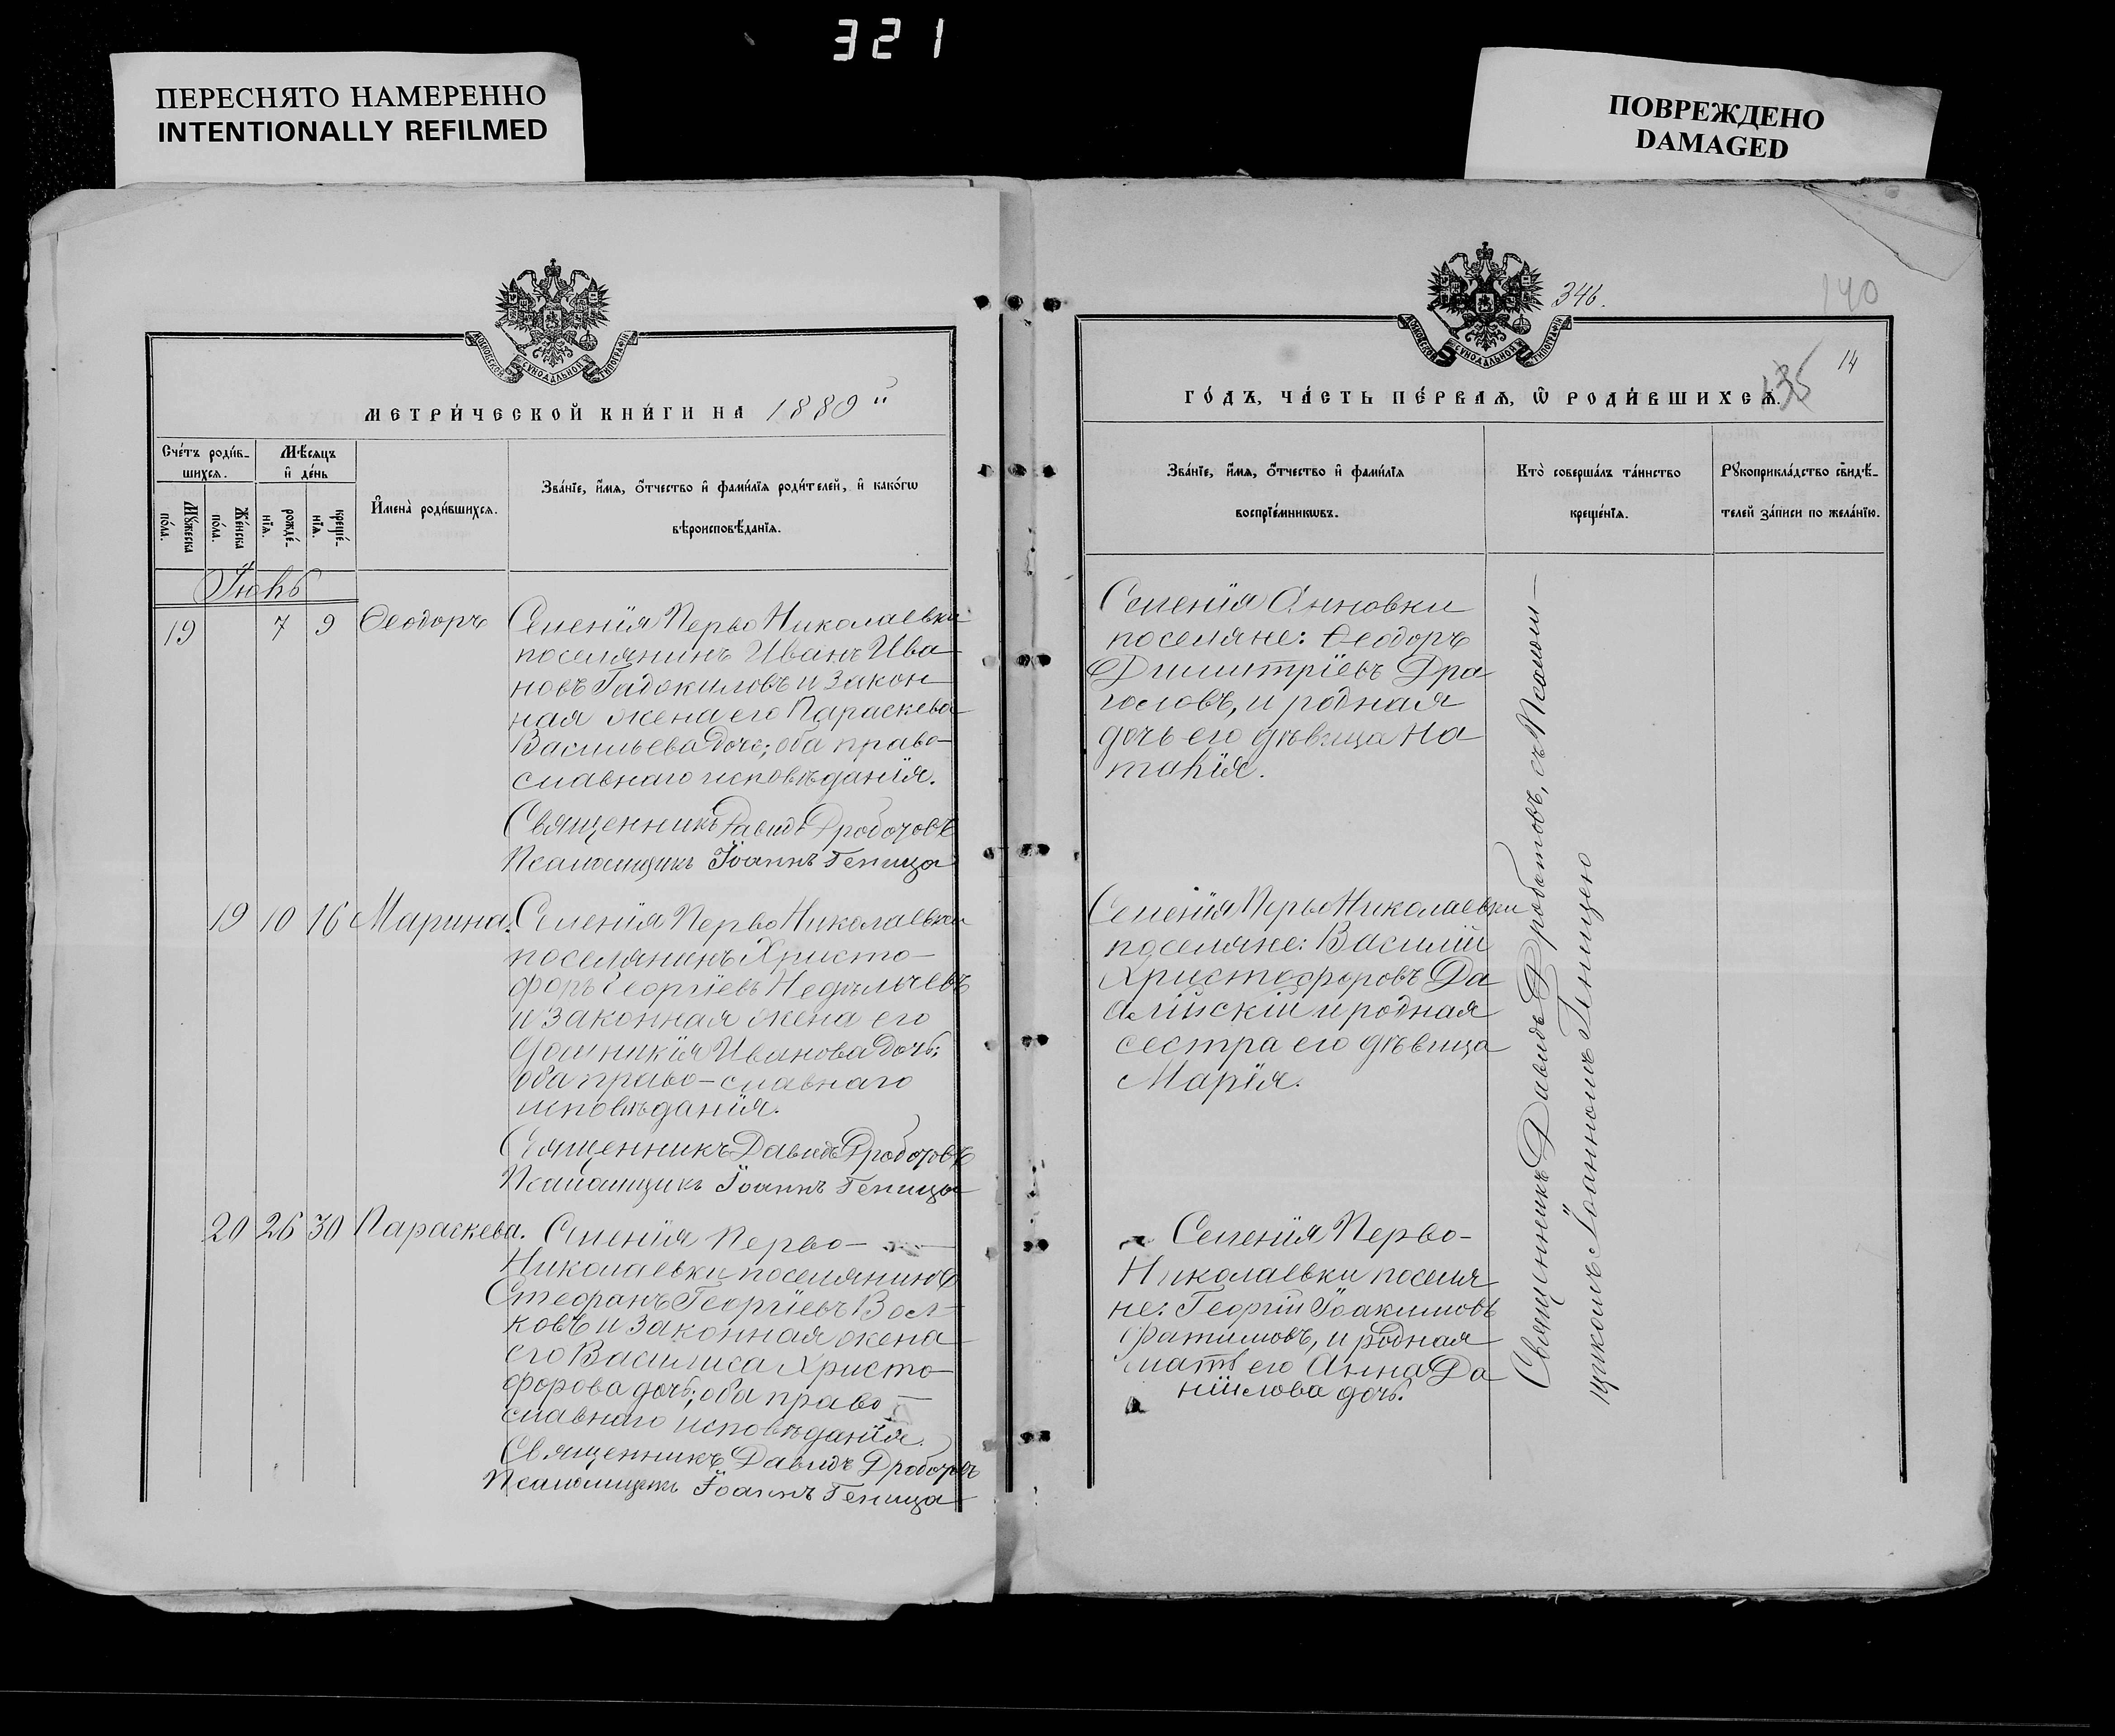 321
ПЕРЕСНЯТО НАМЕРЕННО
INTENTIONALLY REFILMED
ПОВРЕЖДЕНО
DAMAGED
МОСКОВСКОЙ СѴНОДАЛЬНОЙ ТИПОГРАФІИ
МЕТРИ́ЧЕСКОЙ КНИ́ГИ НА 1889
Сче́тъ роди́в-
шихся.
Мꙋ́жеска
по́ла.
Же́нска
по́ла.
Мѣ́сяцъ
и҆ де́нь
рожде́-
нїя.
креще́-
нїя.
И҆мена̀ роди́вшихся.
Зва́нїе, и҆́мя, ѻ҆́тчество и҆ фами́лїя роди́телей, и҆ како́гѡ
вѣроисповѣ́данїя.
Іюнь
19 7 9 Ѳеодоръ
Селенія Перво Николаевки
поселянинъ Иванъ Ива
новъ и закон
ная жена его Параскева
Васильева дочь; оба право-
славнаго исповѣданія.
Священникъ Давидъ Дроботовъ
Псаломщикъ Іоаннъ Геница
19 10 16 Марина.
Селенія Перво Николаевки
поселянинъ Христо-
форъ Георгіевъ Недѣльчевъ
и законная жена его
Домникія Иванова дочь;
оба право-славнаго
исповѣданія.
Священникъ Давидъ Дроботовъ
Псаломщикъ Іоаннъ Геница
20 26 30 Параскева.
Селенія Перво-
Николаевки поселянинъ
Стефанъ Георгіевъ Вол-
ковъ и законная жена
его Василиса Христо-
форова дочь; оба право-
славнаго исповѣданія.
Священникъ Давидъ Дроботовъ
Псаломщикъ Іоаннъ Геница
346.
140
135
14
МОСКОВСКОЙ СѴНОДАЛЬНОЙ ТИПОГРАФІИ
ГО́ДЪ, ЧА́СТЬ ПЕ́РВАЯ, Ѽ РОДИ́ВШИХСЯ.
Зва́нїе, и҆́мя, ѻ҆́тчество и҆ фами́лїя
воспрїе́мникѡвъ.
Кто̀ соверша́лъ та́инство
креще́нїя.
Рꙋкоприкла́дство свидѣ́-
телей за́писи по жела́нїю.
Селенія Анновки
поселяне: Ѳеодоръ
Димитріевъ Дра
гословъ, и родная
дочь его дѣвица На
талія.
Селенія Перво Николаевки
поселяне: Василій
Христофоровъ Да
алійскій и родная
сестра его дѣвица
Марія.
Селенія Перво-
Николаевки поселя
не: Георгій Іоакимовъ
и родная
мать его Анна Да
ніилова дочь.
Священникъ Давидъ Дроботовъ, съ Псалом-
щикомъ Іоанномъ Геницею